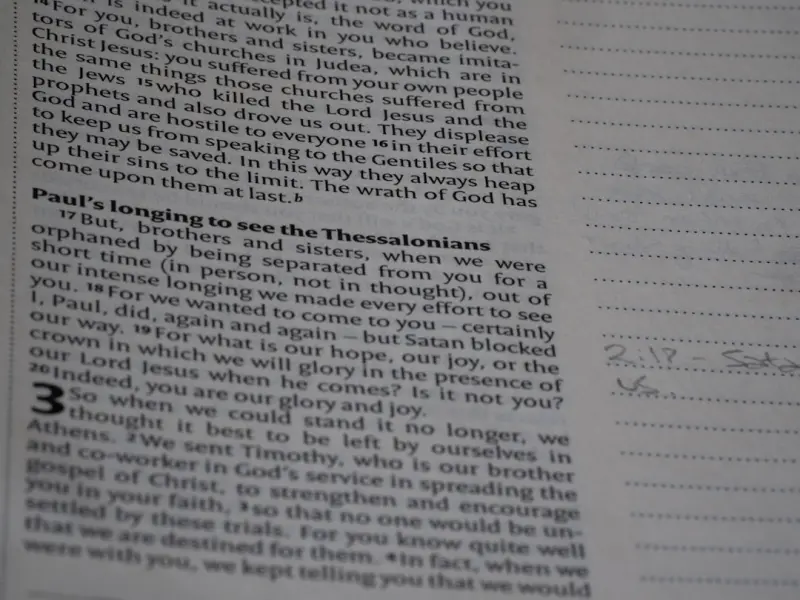 cepted it not as a human
is indeed at work in you who believe.
it actually is, the word of God,
14 For you, brothers and sisters, became imita-
tors of God's churches in Judea, which are in
Christ Jesus: you suffered from your own people
the same things those churches suffered from
the Jews 15 who killed the Lord Jesus and the
prophets and also drove us out. They displease
God and are hostile to everyone 16 in their effort
to keep us from speaking to the Gentiles so that
they may be saved. In this way they always heap
up their sins to the limit. The wrath of God has
come upon them at last.b
Paul's longing to see the Thessalonians
17 But, brothers and sisters, when we were
orphaned by being separated from you for a
short time (in person, not in thought), out of
our intense longing we made every effort to see
you. 18 For we wanted to come to you – certainly
I, Paul, did, again and again – but Satan blocked
our way. 19 For what is our hope, our joy, or the
crown in which we will glory in the presence of
our Lord Jesus when he comes? Is it not you?
20 Indeed, you are our glory and joy.
3 So when we could stand it no longer, we
thought it best to be left by ourselves in
Athens. 2 We sent Timothy, who is our brother
and co-worker in God's service in spreading the
gospel of Christ, to strengthen and encourage
you in your faith, 3 so that no one would be un-
settled by these trials. For you know quite well
that we are destined for them. 4 In fact, when we
were with you, we kept telling you that we would
2:17 - Sata
us